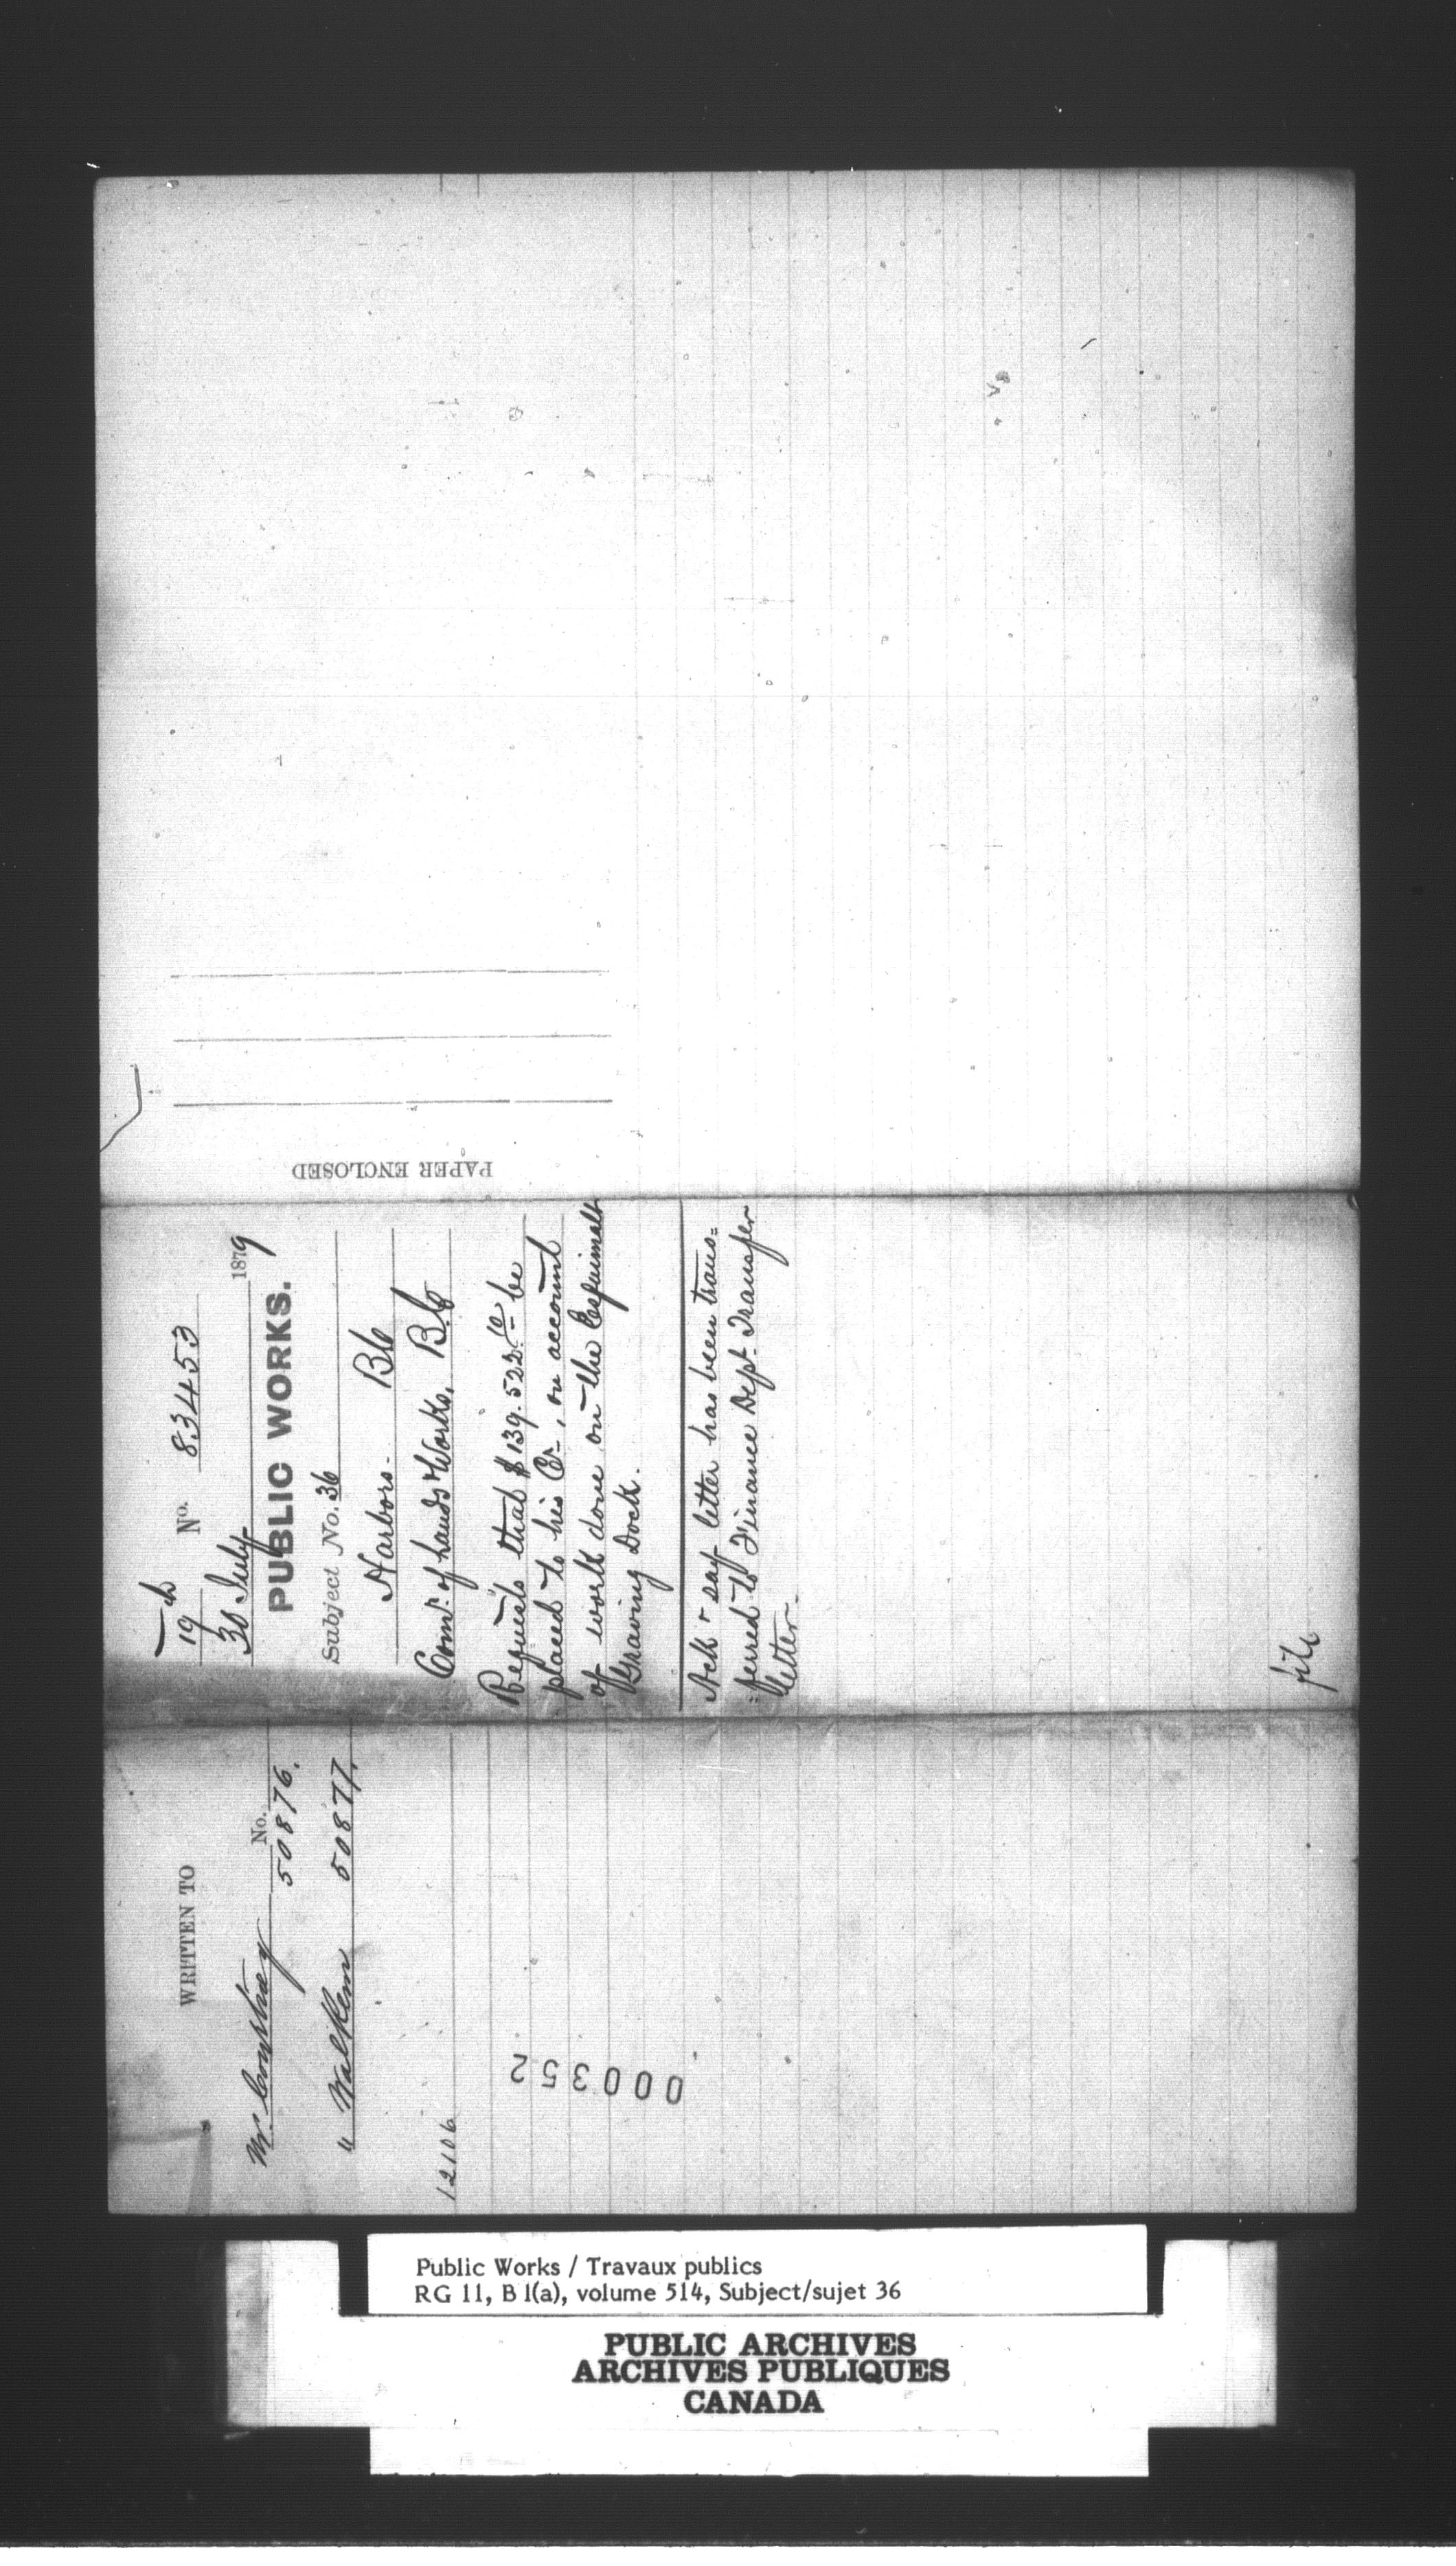 19
No. 83453
30 July 1879
PUBLIC WORKS.
Subject No. 36
Harbors - BC
Comr. of Lands & Works, B.C
Requests that $139.522.10 be
placed to his Cr., on account
of work done on the Esquimalt
Graving Dock.
Ack & say letter has been trans=
=ferred to Finance Dept. Transfer
letter.
file
PAPER ENCLOSED
WRITTEN TO
No.
Mr. Courtney 50876.
" Walkem 50877.
12106
000352
Public Works / Travaux publics
RG 11, B 1(a), volume 514, Subject/sujet 36
PUBLIC ARCHIVES
ARCHIVES PUBLIQUES
CANADA